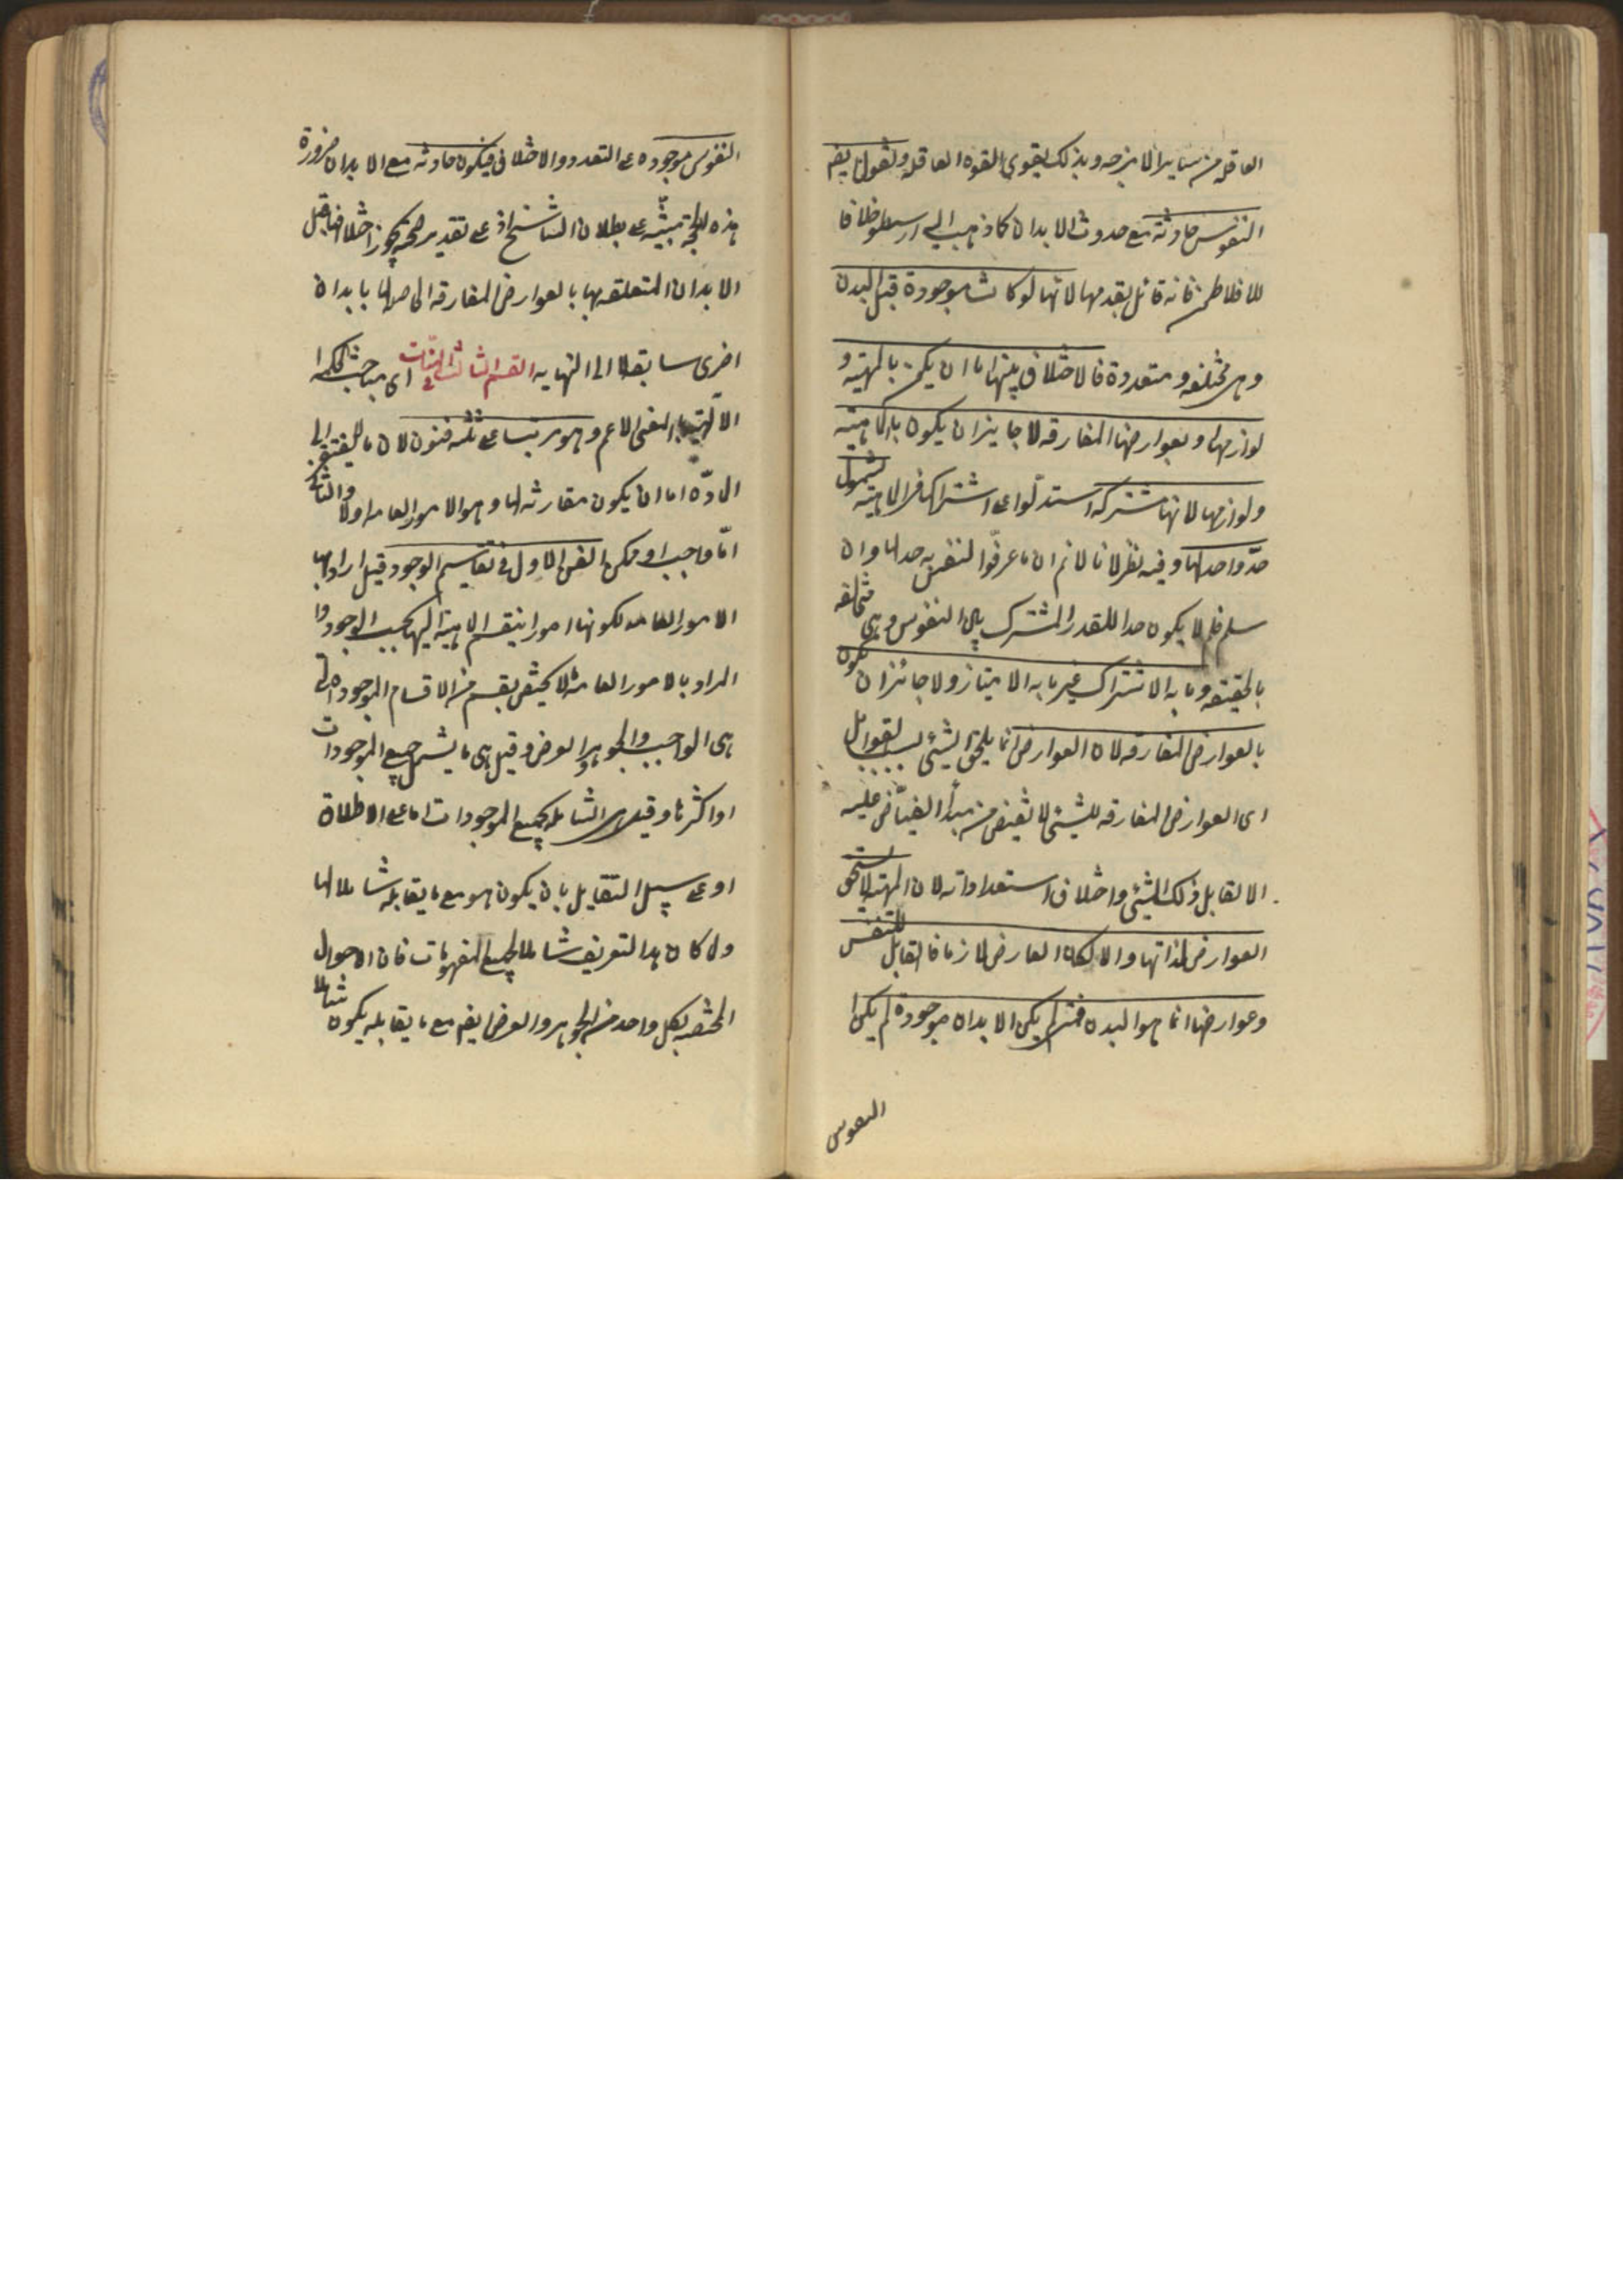 العاقله من سایر الامزجه و بذلک یقوی القوه العاقله و نقول ایضم
النفوس حادثة مع حدوث الابدان کما ذهب الیه ارسطو خلافا
للافلاطن فانه قائل بقدمها لانها لو کانت موجودة قبل البدن
وهی مختلفه و متعددة فالاختلاف بینها اما ان یکون بالمهیته و
لوازمها و بعوارضها المفارقه لا جایز ان یکون بالماهیته
ولوازمها لانها مشترکه استدلّوا علی اشتراکها فی الماهیته لشمول
حدّ واحد لها و فیه نظر لانا لانم ان ما عرفوا النفس به حد لها وان
سلم فلم لا یکون حدا للقدر المشترک بین النفوس وهی متخالفه
بالحقیقه و ما به الاشتراک غیر ما به الامتیاز ولا جائز ان یکون
بالعوارض المفارقه لان العوارض انما یلحق الشیئ بسبب القوابل
ای العوارض المفارقه للشیئ لا تفیض من مبدأ الفیّاض علیه
الا لقابل ذلک الشیئ و اختلاف استعداداته لان المهیة لا تستحق
العوارض لذاتها والا لکان العارض لازما فالقابل للنفس
وعوارضها انما هو البدن فمتی لم یکن الابدان موجودة لم یکن
النفوس
النفوس موجوده علی التعدد والاختلاف فیکون حادثه مع الابدان ضرورة
هذه الحجة مبتنیّه علی بطلان التناسخ اذ علی تقدیر صحته یجوز اختلافها قبل
الابدان المتعلقه بها بالعوارض المفارقه الحاصله لها بابدان
اخری سابقه لا الی النهایه القسم الثالث فی الالهیّات ای مباحث الحکمه
الالهیّه بالمعنی الاعم وهو مرتب علی ثلثه فنون لان ما لا یفتقر الی
المادّه اما ان یکون مقارنه لها وهو الامور العامه اولا والثانی
امّا واجب او ممکن الفن الاول فی تقاسیم الوجود قیل اراد بها
الامور العامه لکونها امورا ینقسم الماهیة الیها بحسب الوجود و
المراد بالامور العامه ما لا یختص بقسم من الاقسام الموجود التی
هی الواجب والجوهر والعرض و قیل هی ما یشمل جمیع الموجودات
او اکثرها و قیل هی الشامله لجمیع الموجودات اما علی الاطلاق
او علی سبیل التقابل بان یکون هو مع ما یقابله شاملا لها
ولما کان هذا التعریف شاملا لجمیع المفهومات فان الاحوال
المختصه بکل واحد من الجوهر والعرض ایضم مع ما یقابله یکون شاملا